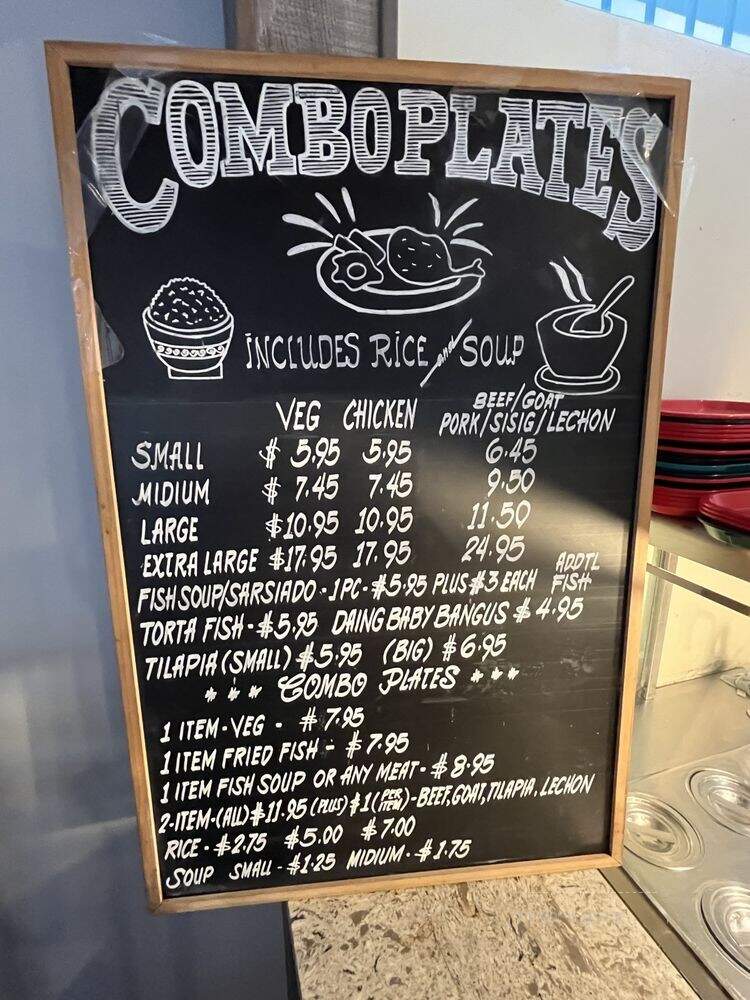 COMBO PLATES
INCLUDES RICE and SOUP
VEG CHICKEN BEEF/GOAT PORK/SISIG/LECHON
SMALL $5.95 5.95 6.45
MIDIUM $7.45 7.45 9.50
LARGE $10.95 10.95 11.50
EXTRA LARGE $17.95 17.95 24.95
FISH SOUP/SARSIADO - 1PC - $5.95 PLUS $3 EACH ADDTL FISH
TORTA FISH - $5.95 DAING BABY BANGUS $4.95
TILAPIA (SMALL) $5.95 (BIG) $6.95
*** COMBO PLATES ***
1 ITEM - VEG - $7.95
1 ITEM FRIED FISH - $7.95
1 ITEM FISH SOUP OR ANY MEAT - $8.95
2-ITEM-(ALL) $11.95 (PLUS) $1 (PER ITEM) - BEEF, GOAT, TILAPIA, LECHON
RICE - $2.75 $5.00 $7.00
SOUP SMALL - $1.25 MIDIUM - $1.75